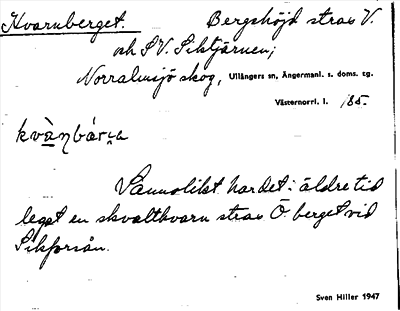 Kvarnberget. Bergshöjd strax V.
och S V. Siktjärnen;
Norralmsjö skog, Ullångers sn, Ångermanl. s. doms. tg.
Västernorrl. l. 185.
kvànbár
Sannolikt har det i äldre tid
legat en skvaltkvarn strax Ö. berget vid
Sikforsån.
Sven Hiller 1947